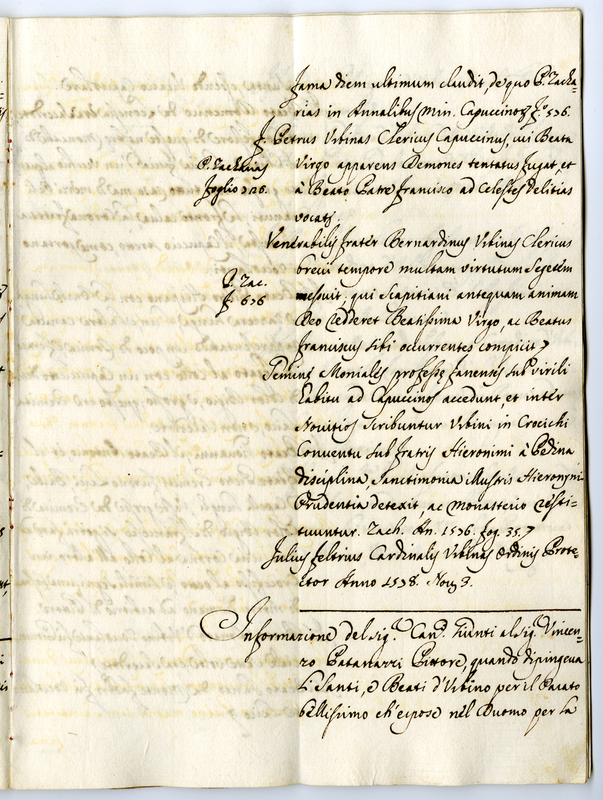 fama diem ultimum claudit, de quo P. Zacha=
rias in Annalibus Min. Capuccinoꝝ fo. 536.
f. Petrus Urbinas Clericus Capuccinus, cui Beata
P. Zacharias
foglio
Virgo apparens Demones tentatus fugat, et
à Beato Patre Francisco ad Celestes delitias
vocatꝰ.
Venerabilis frater Bernardinus Urbinas Clericus
P. Zac.
f. 636
brevi tempore multam virtutum Segetem
messuit; qui Scapitiani antequam animam
Deo redderet Beatissima Virgo, ac Beatus
Franciscus sibi occurrentes conspicit
Gemine Moniales professe fanenses sub virili
habitu ad Capuccinos accedunt, et inter
Novitios scribuntur Urbini in Crocichi
Conventu sub fratris Hieronimi à Pedina
disciplina, Sanctimonia illustris Hieronymi
Prudentia detexit, ac Monasterio resti=
tuuntur. Zach. An. 1536. fog. 35.
Julius Feltrius Cardinalis Urbinas Ordinis Prote=
ctor Anno 1538. Noũ 3.
Informazione del Sig.r Can.o Giunti al Sig.r Vincen=
zo Patanazzi Pittore, quando dipingeva
Li Santi, e Beati d'Urbino per il Parato
bellissimo ch'espose nel Duomo per la